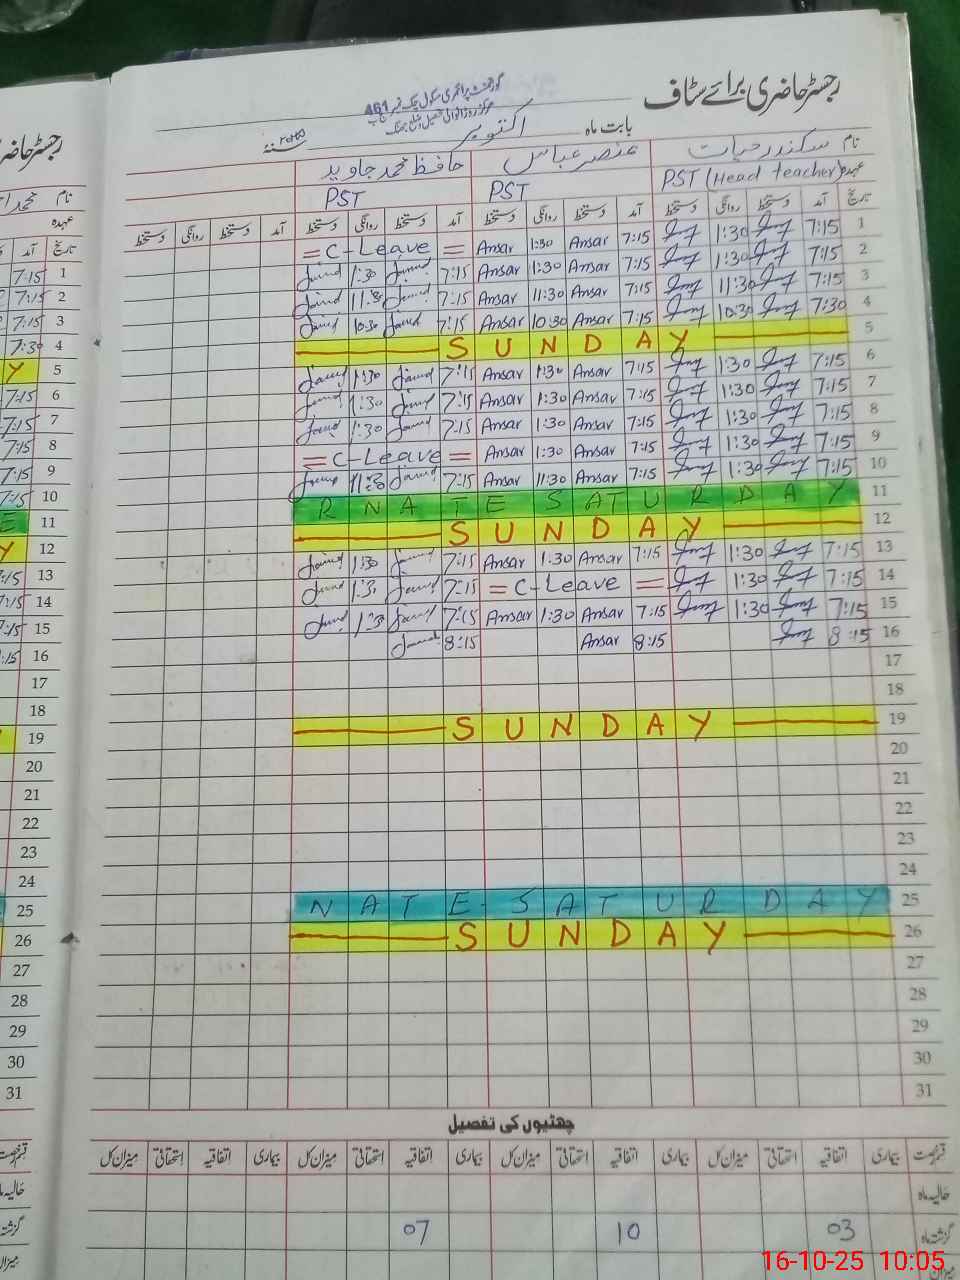 رجسٹر حاضری برائے سٹاف
گورنمنٹ پرائمری سکول چک نمبر 461
بابت ماہ اکتوبر
نام سکندر حیات عنصر عباس حافظ محمد جاوید
عہدہ PST (Head teacher) PST PST
تاریخ آمد دستخط روانگی دستخط آمد دستخط روانگی دستخط آمد دستخط روانگی دستخط آمد دستخط روانگی دستخط
= C-Leave = Ansar 1:30 Ansar 7:15 1:30 7:15 1
1:30 7:15 Ansar 1:30 Ansar 7:15 1:30 7:15 2
11:30 7:15 Ansar 11:30 Ansar 7:15 11:30 7:15 3
10:30 7:15 Ansar 10:30 Ansar 7:15 10:30 7:30 4
SUNDAY 5
1:30 7:15 Ansar 1:30 Ansar 7:15 1:30 7:15 6
1:30 7:15 Ansar 1:30 Ansar 7:15 1:30 7:15 7
1:30 7:15 Ansar 1:30 Ansar 7:15 1:30 7:15 8
= C-Leave = Ansar 1:30 Ansar 7:15 1:30 7:15 9
11:30 7:15 Ansar 11:30 Ansar 7:15 1:30 7:15 10
RNATE SATURDAY 11
SUNDAY 12
1:30 7:15 Ansar 1:30 Ansar 7:15 1:30 7:15 13
1:30 7:15 = C-Leave = 1:30 7:15 14
1:30 7:15 Ansar 1:30 Ansar 7:15 1:30 7:15 15
8:15 Ansar 8:15 8:15 16
17
18
SUNDAY 19
20
21
22
23
24
NATE-SATURDAY 25
SUNDAY 26
27
28
29
30
31
چھٹیوں کی تفصیل
قسم رخصت بیماری اتفاقیہ استحقاقی میزان کل بیماری اتفاقیہ استحقاقی میزان کل بیماری اتفاقیہ استحقاقی میزان کل بیماری اتفاقیہ استحقاقی میزان کل
حالیہ ماہ
گزشتہ ماہ 03 10 07
میزان
رجسٹر حاضر
نام
عہدہ
تاریخ آمد
7:15 1
7:15 2
7:15 3
7:30 4
Y 5
7:15 6
7:15 7
7:15 8
7:15 9
7:15 10
E 11
Y 12
7:15 13
7:15 14
7:15 15
7:15 16
17
18
19
20
21
22
23
24
25
26
27
28
29
30
31
قسم رخصت
حالیہ ماہ
گزشتہ
میزان
16-10-25 10:05